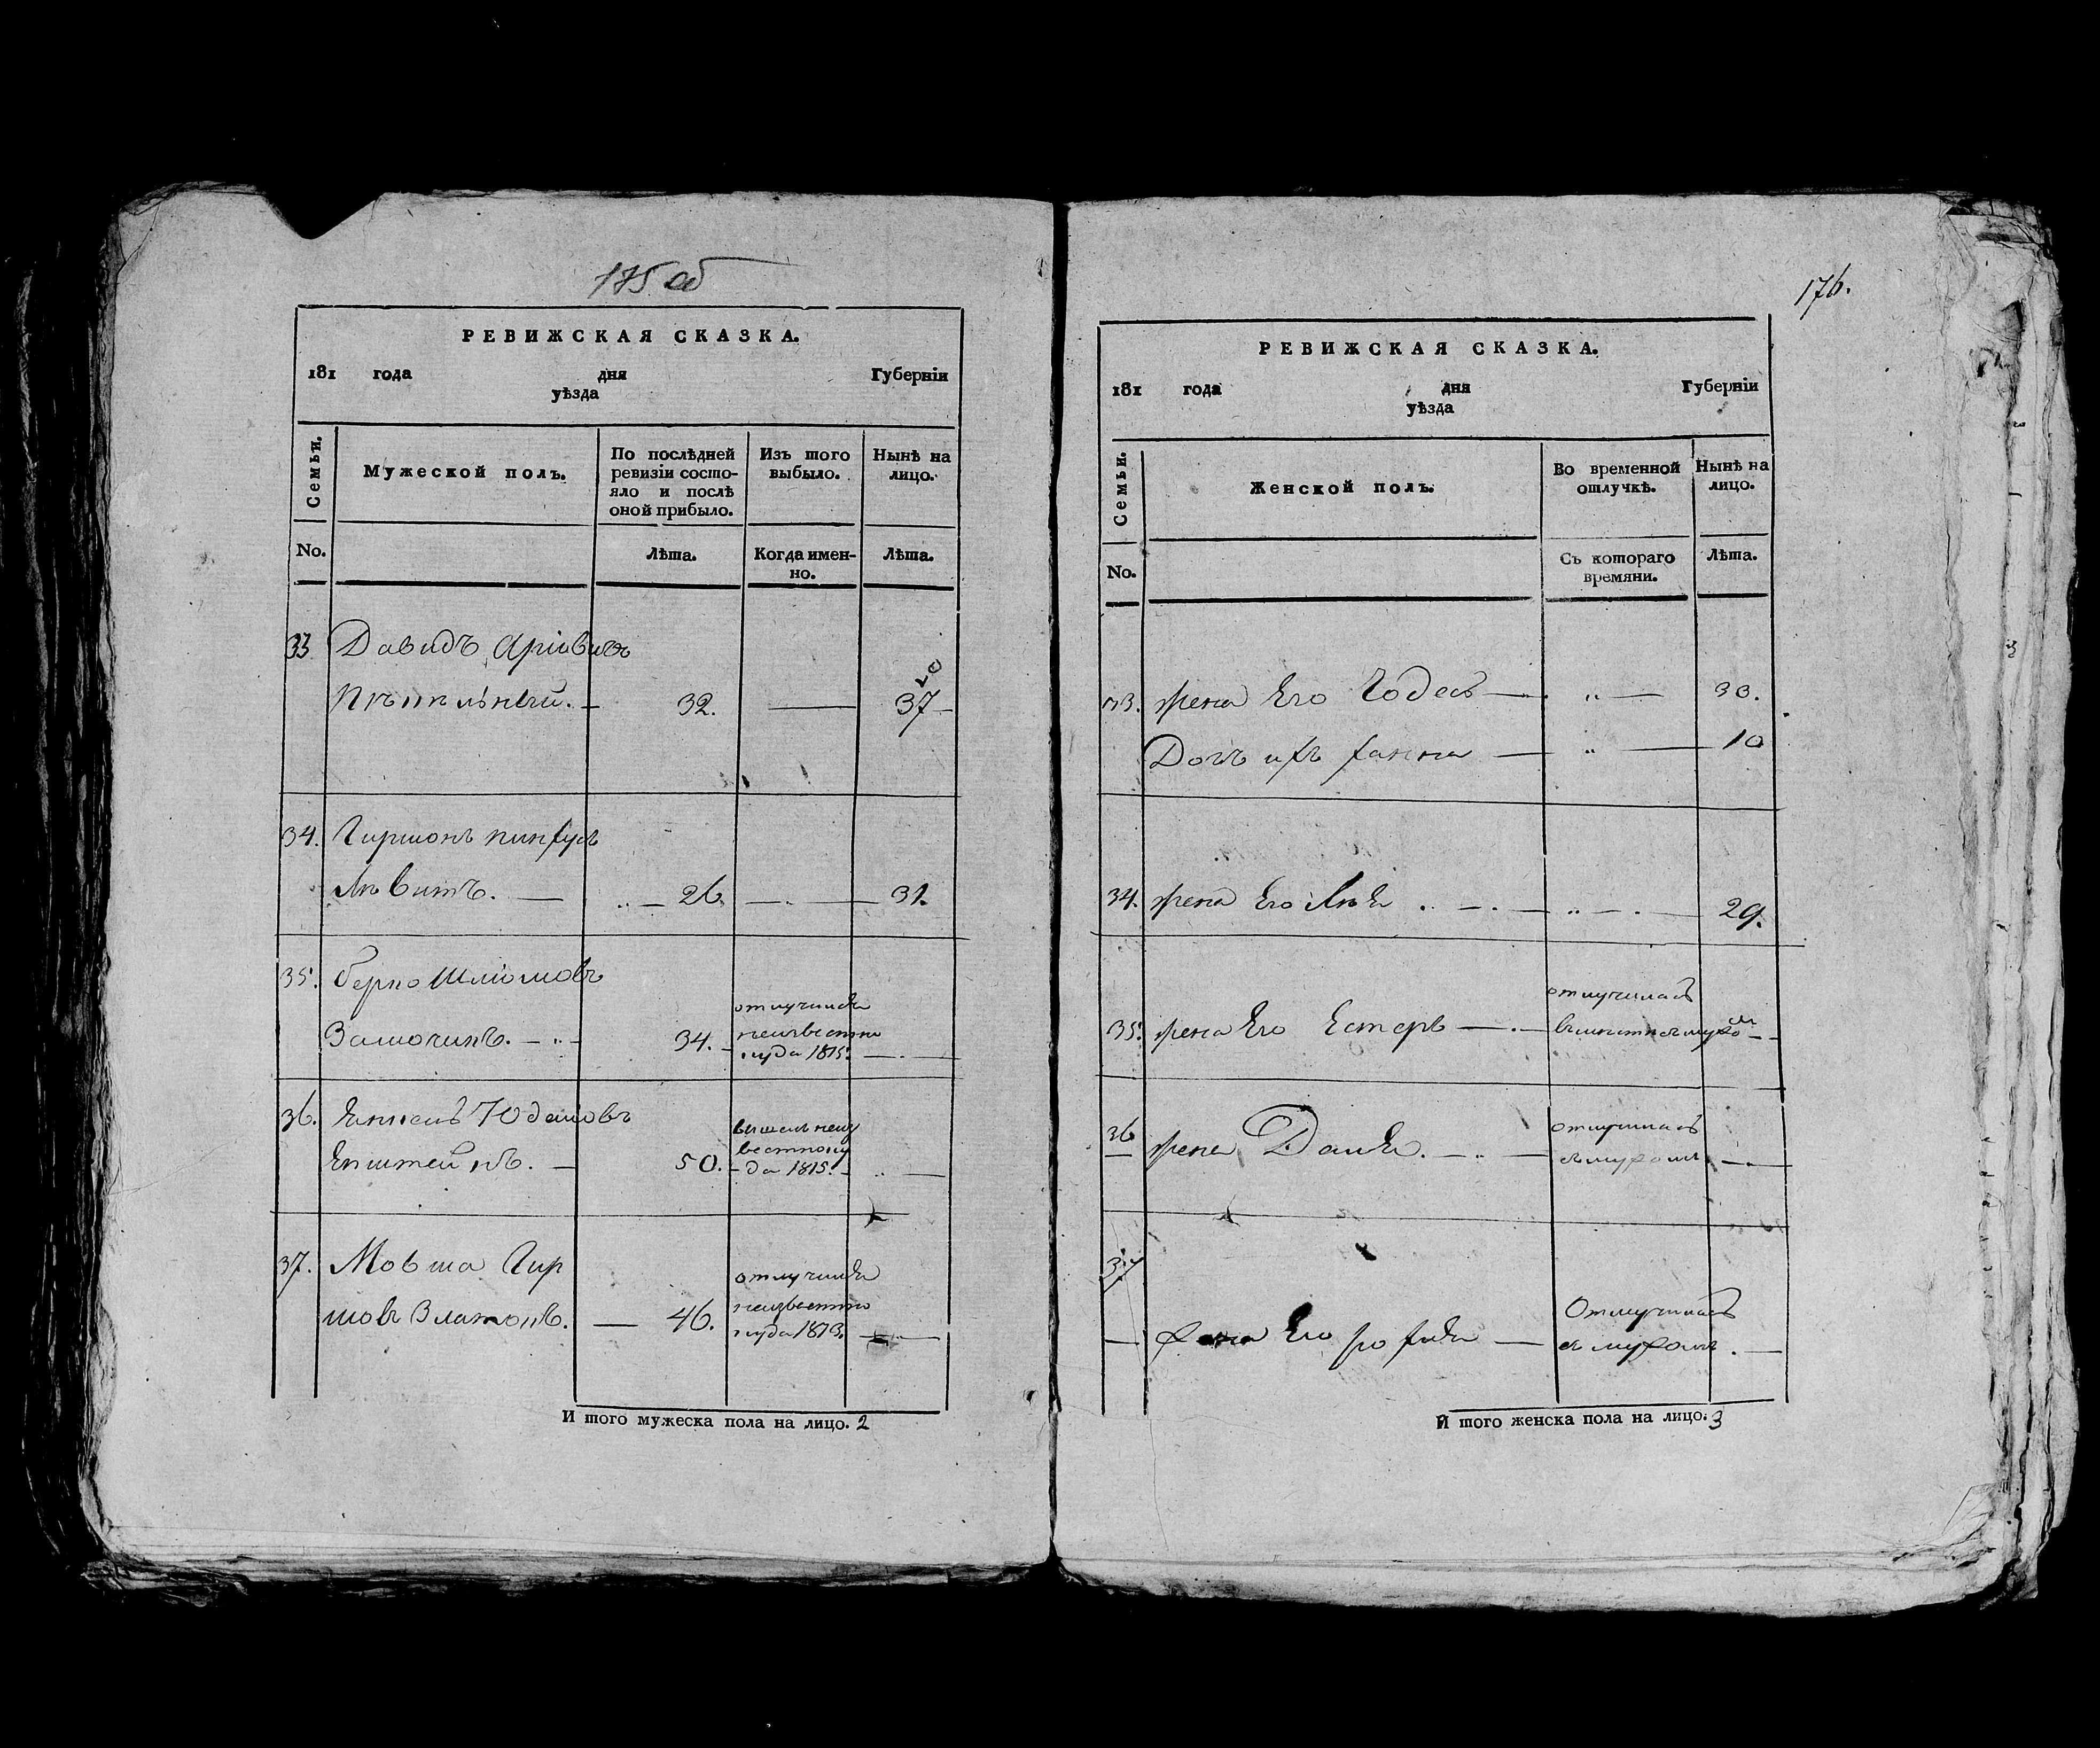 175 об
РЕВИЖСКАЯ СКАЗКА.
181 года дня Губерніи
уѣзда
Семьи.
Мужеской полъ.
По послѣдней ревизіи состояло и послѣ оной прибыло.
Изъ того выбыло.
Нынѣ на лицо.
No.
Лѣта.
Когда именно.
Лѣта.
33 Давидъ
32. 37
34. Гиршонъ
Левитъ. 26 31.
35. Берко Шліомовъ отлучился
34. неизвестно
куда 1815.
36. вышел неиз
Епштейнъ. 50. вестно ку
да 1815.
37. Мовша Гир отлучился
шовъ Златонъ. 46. неизвестно
куда 1813.
И того мужеска пола на лицо. 2
176.
РЕВИЖСКАЯ СКАЗКА.
181 года дня Губерніи
уѣзда
Семьи.
Женской полъ.
Во временной отлучкѣ.
Нынѣ на лицо.
No.
Съ котораго времяни.
Лѣта.
33. жена Его Годесъ 33.
Дочъ ихъ ханна 10
34. жена Его Лея 29.
отлучилась
35. жена Его Естеръ
36 жена отлучилась
с мужем
37
Отлучилась
жена Его с мужем
И того женска пола на лицо. 3